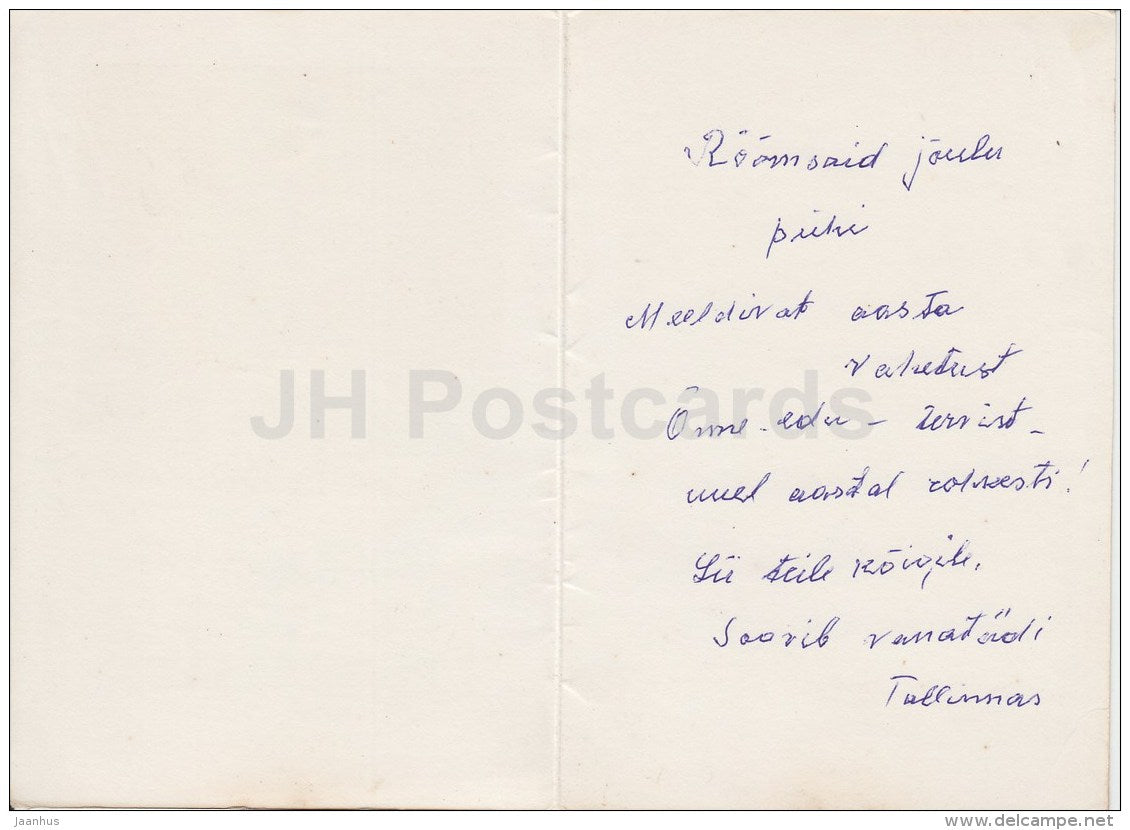 Rõõmsaid jõulu
pühi
Meeldivat aasta
vahetust
Õnne-edu - tervist -
uuel aastal rohkesti!
teile kõigile,
Soovib vanatädi
Tallinnas
JH Postcards
Jaanhus
www.delcampe.net